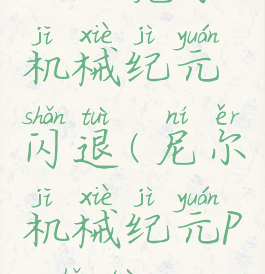 jī xiè jì yuán
机械纪元
shǎn tuì ní ěr
闪退(尼尔
jī xiè jì yuán
机械纪元P